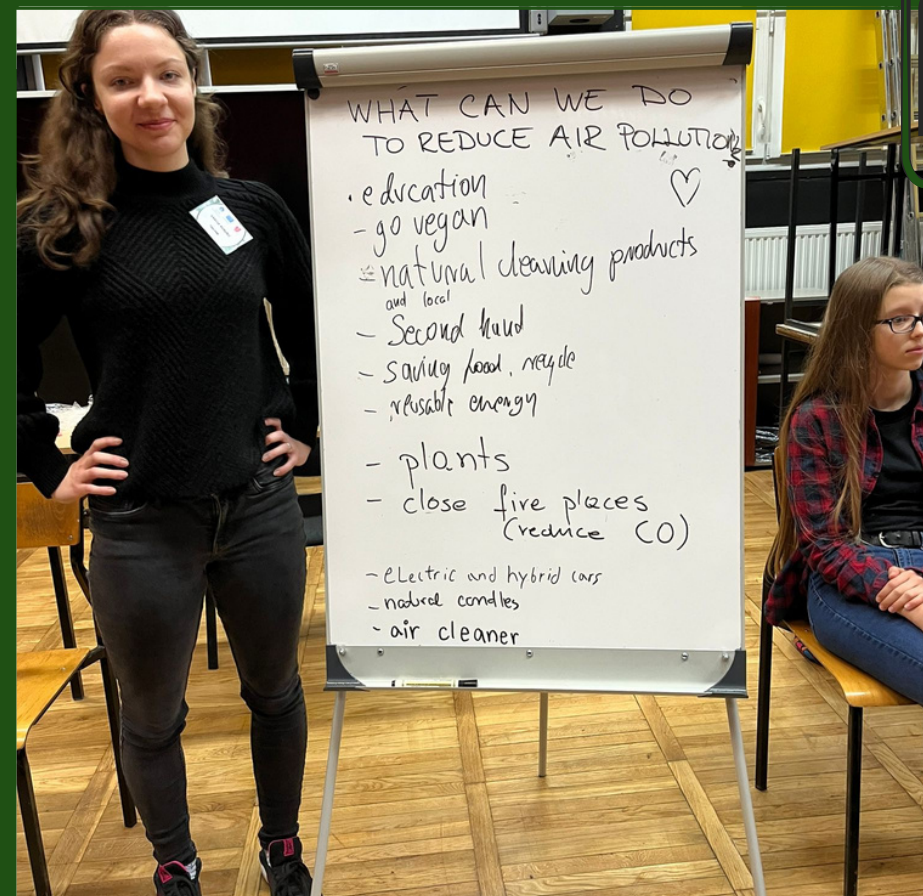 WHAT CAN WE DO
TO REDUCE AIR POLLUTION?
• education
- go vegan
- natural cleaning products
and local
- Second hand
- saving food, recycle
- reusable energy
- plants
- close fire places
(reduce CO)
- electric and hybrid cars
- natural candles
- air cleaner